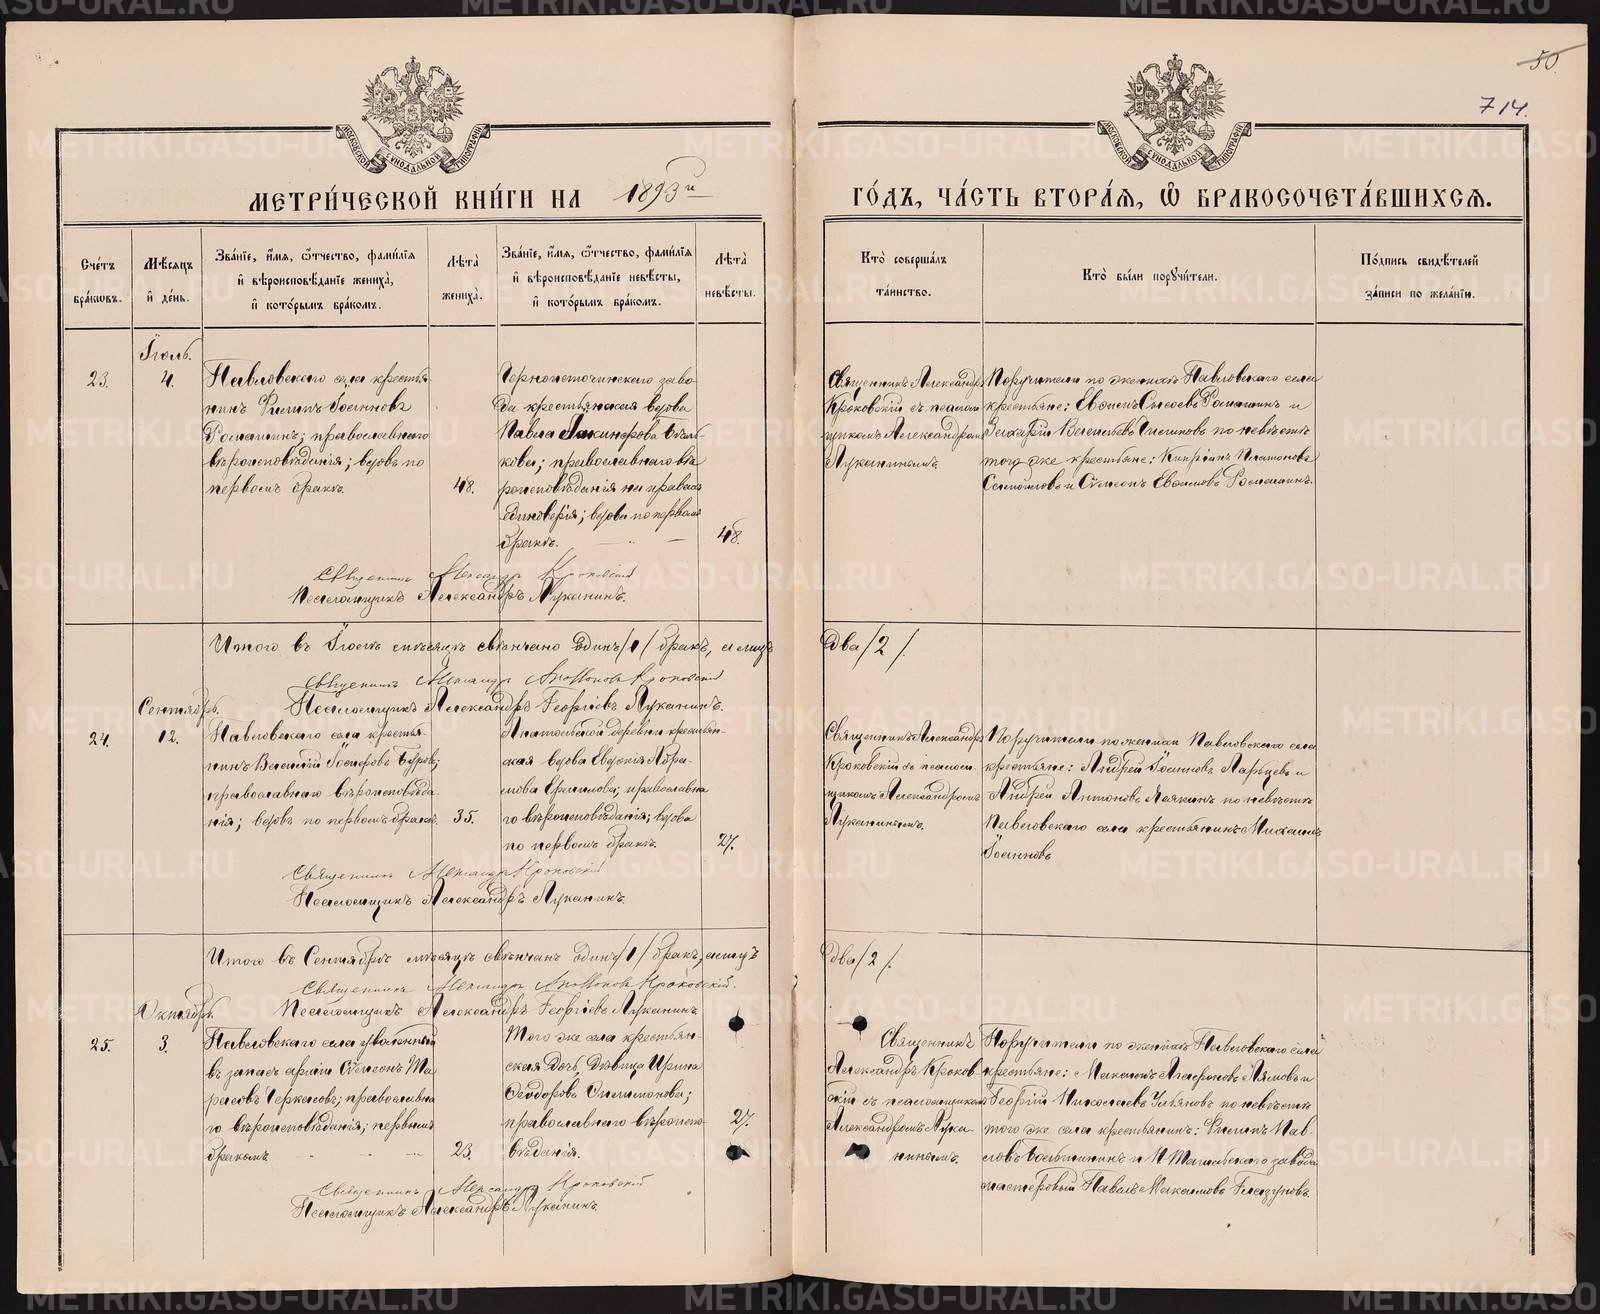 50.
714.
МЕТРИ́ЧЕСКОЙ КНИ́ГИ НА 1893й
ГО́ДЪ, ЧА́СТЬ ВТОРА́Я, Ѽ БРАКОСОЧЕТА́ВШИХСЯ.
Сче́тъ бра́ковъ.
Мѣ́сяцъ и҆ де́нь.
Зва́нїе, и҆́мя, ѻ҆́тчество, фами́лїа
и҆ вѣроисповѣ́данїе жениха̀,
и҆ кото́рымъ бра́комъ.
Лѣ́та жениха̀.
Зва́нїе, и҆́мя, ѻ҆́тчество, фами́лїа
и҆ вѣроисповѣ́данїе невѣ́сты,
и҆ кото́рымъ бра́комъ.
Лѣ́та невѣ́сты.
Кто̀ соверша́лъ
та́инство.
Кто̀ бы́ли поручи́тели.
По́дпись свидѣ́телей
за́писи по жела́нїю.
Іюль.
23.
4.
Павловскаго села крестья
нинъ Филипъ Іоанновъ
Ромашинъ; православнаго
вѣроисповѣданія; вдовъ по
первомъ бракѣ.
48.
Черноисточинскаго заво-
да крестьянская вдова
Павла
православнаго вѣ
роисповѣданія на правахъ
единовѣрія; вдова по первомъ
бракѣ.
48.
Священникъ Александръ
Кроковскій съ псалом
щикомъ Александромъ
Луканинымъ.
Поручители по женихѣ Павловскаго села
крестьяне: Ромашинъ и
Захарій по невѣстѣ
того же крестьяне: Кипріанъ Платоновъ
Самойловъ и Сѵмеонъ Ромашинъ.
Священникъ Александръ Кроковскій
Псаломщикъ Александръ Луканинъ.
Итого въ Іюлѣ мѣсяцѣ свѣнчано одинъ /1/ бракъ, а лицъ
Два /2/.
Священникъ Александръ Кроковскій
Псаломщикъ Александръ Георгіевъ Луканинъ.
Сентябрь.
24.
12.
Павловскаго села крестья-
нинъ Василій
православнаго вѣроисповѣда
нія; вдовъ по первомъ бракѣ.
35.
деревни крестьян-
ская вдова Евдокія Абра-
мова православна
го вѣроисповѣданія; вдова
по первомъ бракѣ.
27.
Священникъ Александръ
Кроковскій съ псалом-
щикомъ Александромъ
Луканинымъ.
Поручители по женихѣ Павловскаго села
крестьяне: Андрей Іоанновъ и
Андрей Антоновъ по невѣстѣ
Павловскаго села крестьянинъ Михаилъ
Іоанновъ
Священникъ Александръ Кроковскій
Псаломщикъ Александръ Луканинъ.
Итого въ Сентябрѣ мѣсяцѣ свѣнчанъ одинъ /1/ бракъ, а лицъ
Два /2/.
Священникъ Александръ Кроковскій.
Псаломщикъ Александръ Георгіевъ Луканинъ
Октябрь.
25.
3.
Павловскаго села уволенный
въ запасъ арміи Сѵмеонъ Ма
православна
го вѣроисповѣданія; первымъ
бракомъ
23.
Того же села крестьян-
ская дочь, дѣвица Ирина
Ѳеодорова
православнаго вѣроиспо-
вѣданія.
27.
Священникъ
Александръ Кроков-
скій съ псаломщикомъ
Александромъ Лука-
нинымъ.
Поручители по женихѣ Павловскаго села
крестьяне: и
Георгій Николаевъ по невѣстѣ
того же села крестьянинъ: Филипъ Пав-
ловъ и Н-Тагильскаго завода
мастеровый Павелъ Максимовъ Глазуновъ.
Священникъ Александръ Кроковскій
Псаломщикъ Александръ Луканинъ.
METRIKI.GASO-URAL.RU